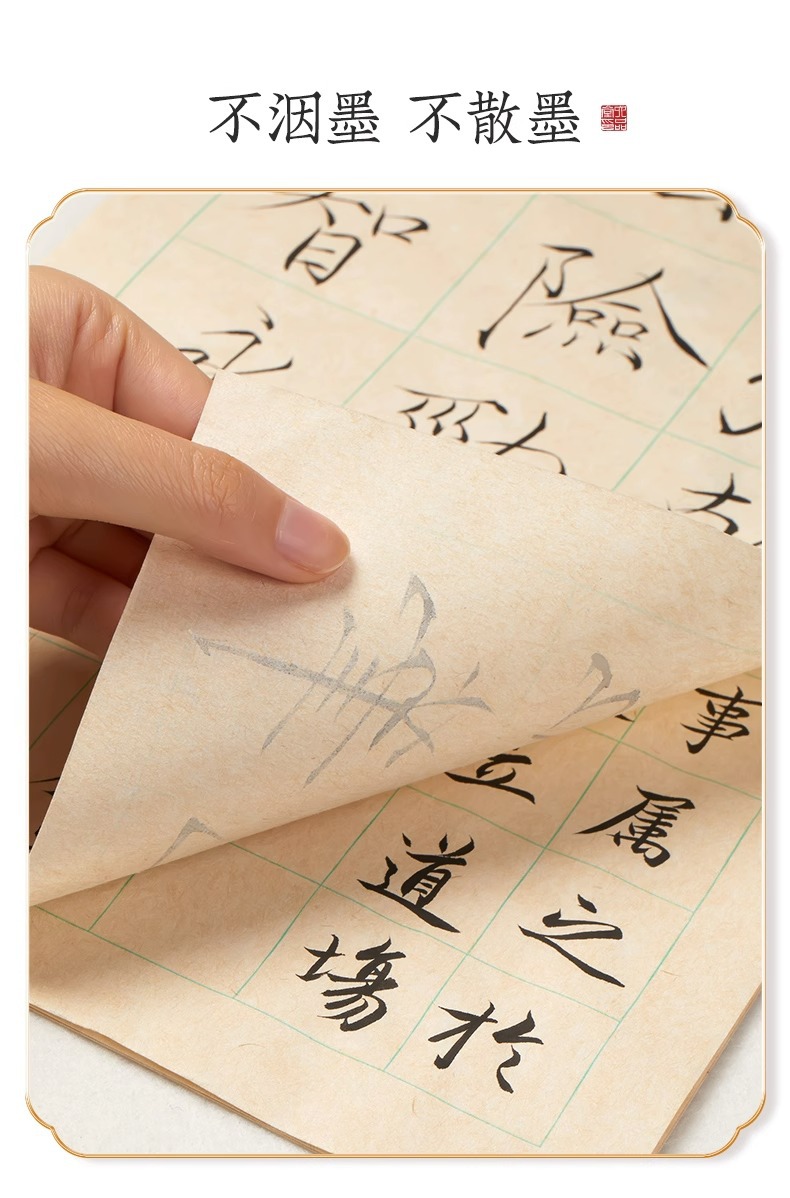 不洇墨 不散墨
險勁
智
事属之於
立道場